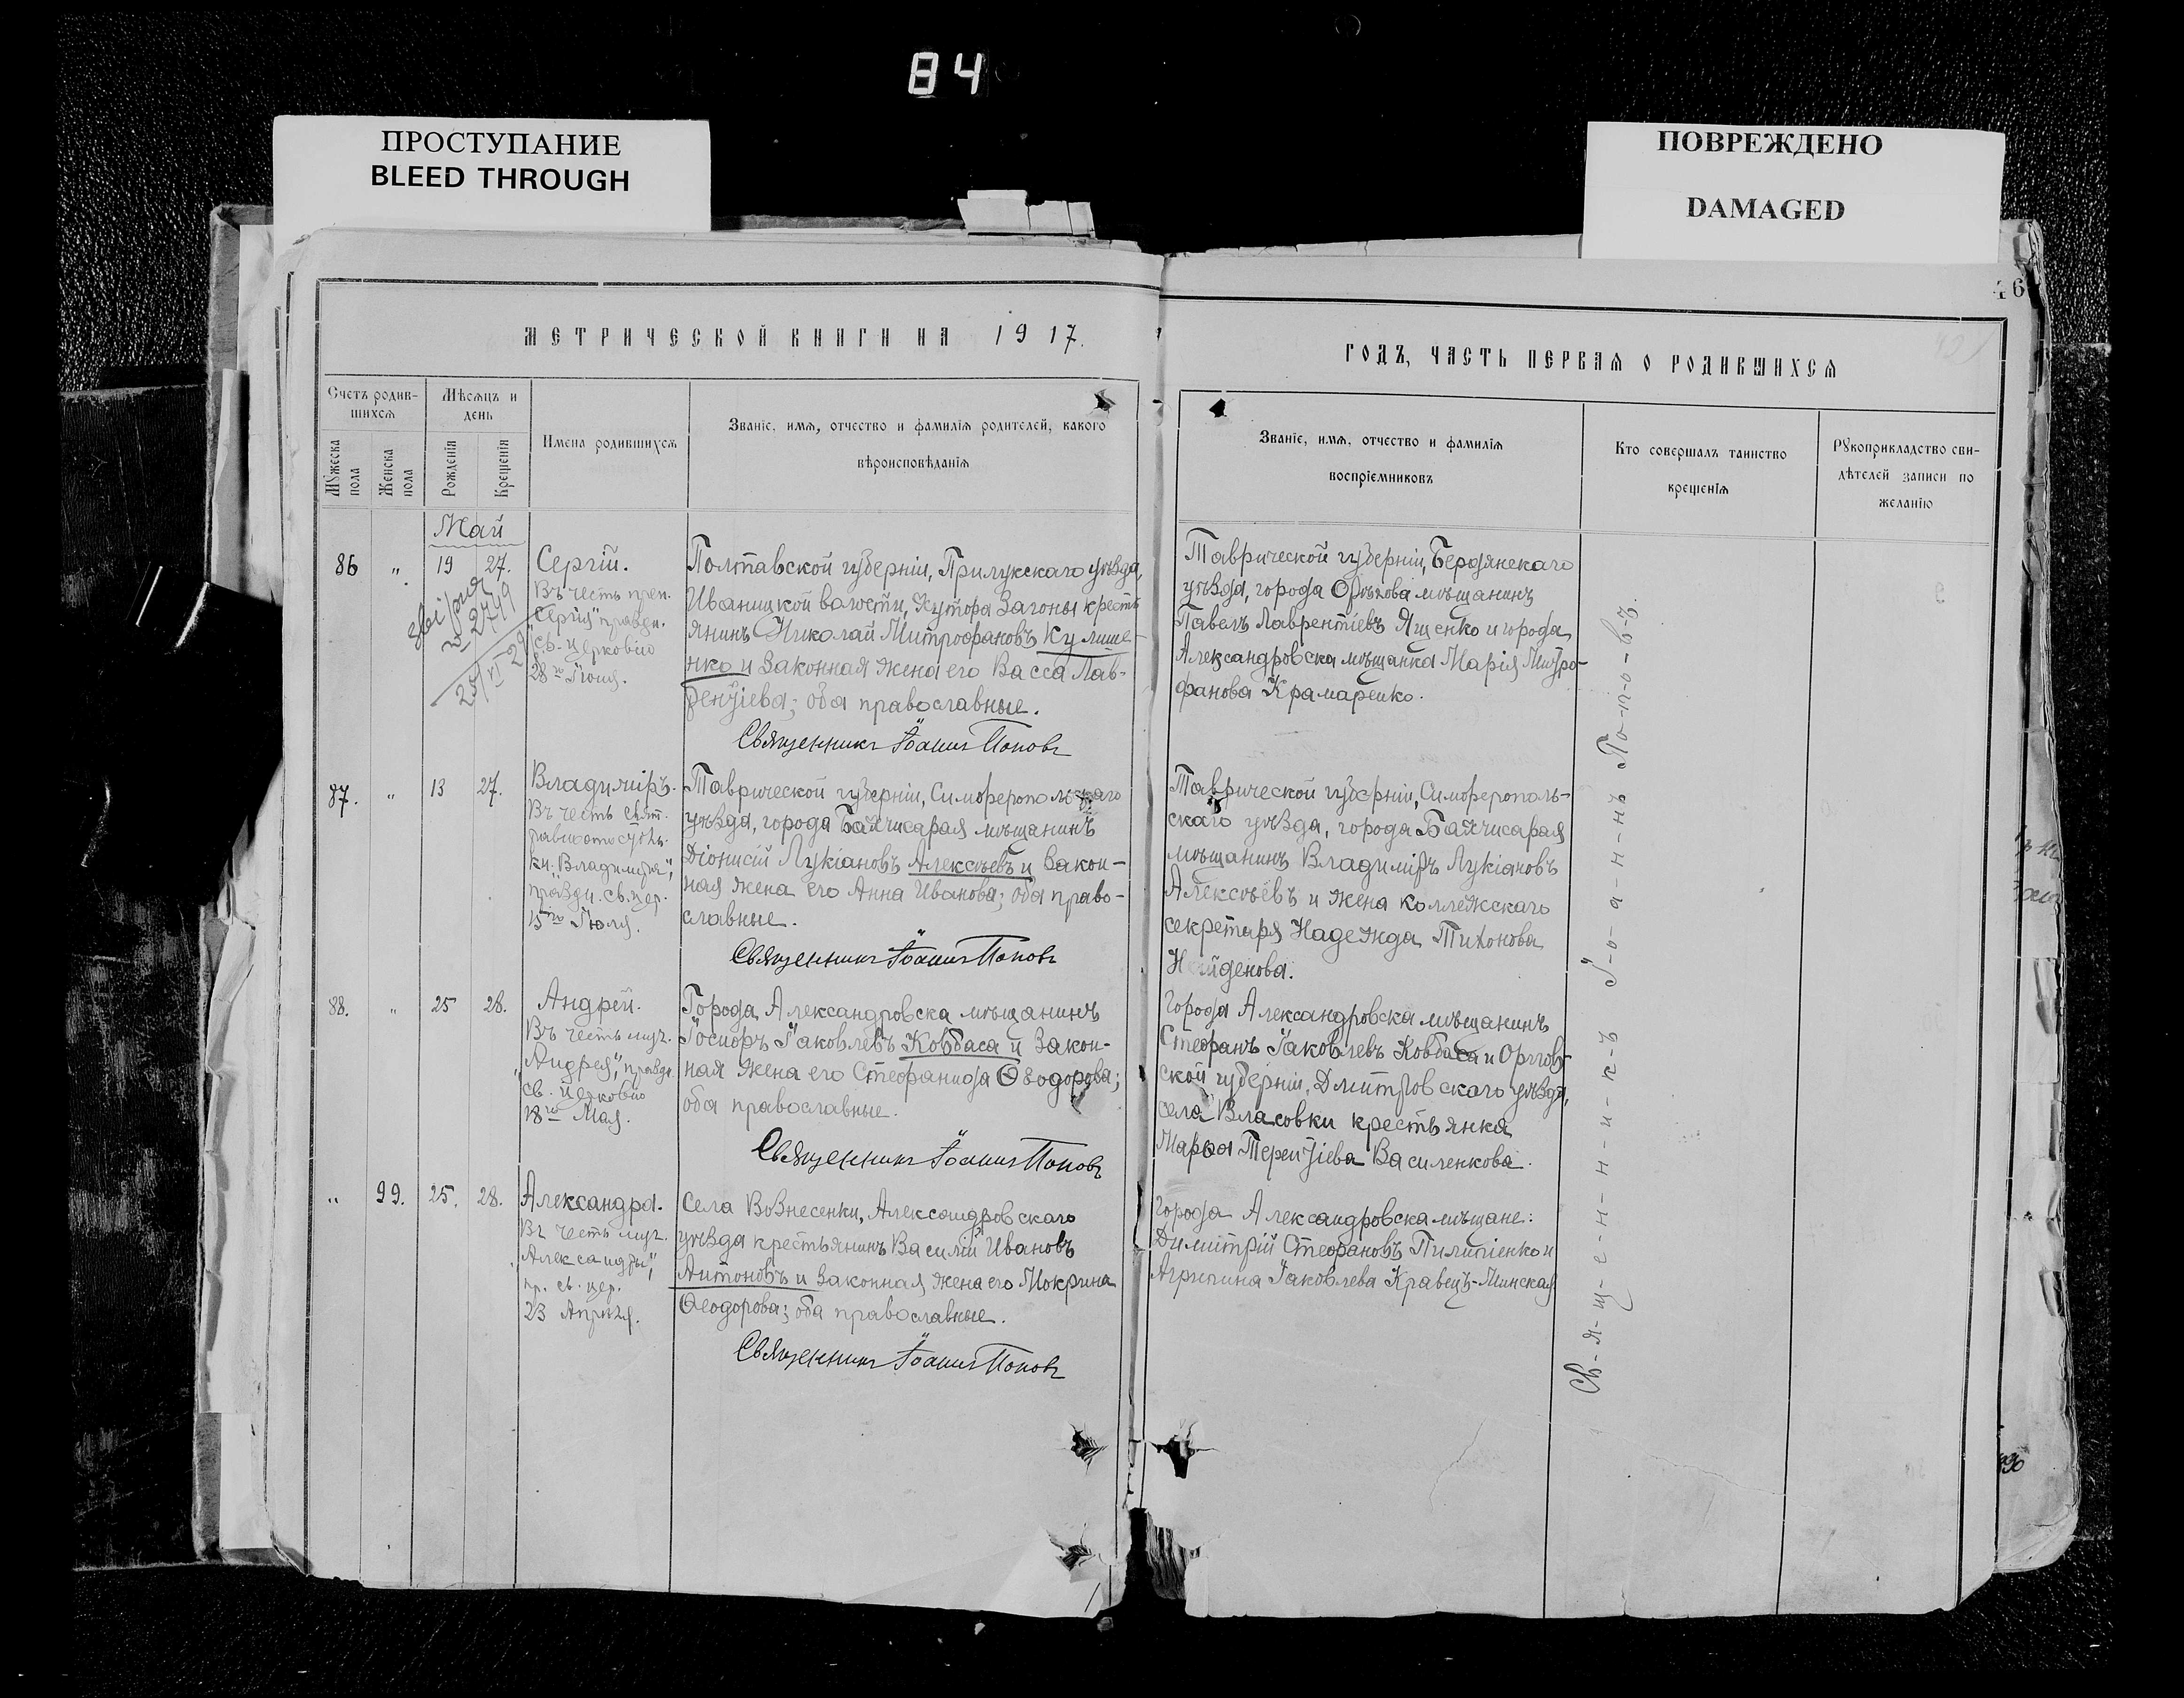 84
ПРОСТУПАНИЕ
BLEED THROUGH
ПОВРЕЖДЕНО
DAMAGED
46
МЕТРИЧЕСКОЙ КНИГИ НА 1917.
ГОДЪ, ЧАСТЬ ПЕРВАЯ О РОДИВШИХСЯ
Счетъ родив-
шихся
Мꙋжеска
пола
Женска
пола
Мѣсяцъ и
день
Рожденія
Крещенія
Имена родившихся
Званіе, имя, отчество и фамилія родителей, какого
вѣроисповѣданія
Званіе, имя, отчество и фамилія
воспріемниковъ
Кто совершалъ таинство
крещенія
Рꙋкоприкладство сви-
дѣтелей записи по
желанію
Май
86 " 19 27.
№ 2749
25/VI 29
Сергій.
Въ честь преп.
"Сергія" праздн.
св. церковію
28го Іюня.
Полтавской губерніи, Прилукскаго уѣзда,
Иваницкой волости, хутора Загоны кресть
янинъ Николай Митрофановъ Кулише-
нко и законная жена его Васса Лав-
рентіева; оба православные.
Священникъ Іоаннъ Поповъ
Таврической губерніи, Бердянскаго
уѣзда, города Орѣхова мѣщанинъ
Павелъ Лаврентіевъ Ященко и города
Александровска мѣщанка Марія Митро-
фанова Крамаренко.
87. " 13 27.
Владиміръ.
Въ честь свят.
равноапостольн.
кн. "Владиміра",
праздн. св. цер.
15го Іюля.
Таврической губерніи, Симферопольскаго
уѣзда, города Бахчисарая мѣщанинъ
Діонисій Лукіановъ Алексѣевъ и закон-
ная жена его Анна Иванова; оба право-
славные.
Священникъ Іоаннъ Поповъ
Таврической губерніи, Симферополь-
скаго уѣзда, города Бахчисарая
мѣщанинъ Владиміръ Лукіановъ
Алексѣевъ и жена коллежскаго
секретаря Надежда Тихонова
Найденова.
88. " 25 28.
Андрей.
Въ честь муч.
"Андрея", праздн.
св. церковію
18го Мая.
Города Александровска мѣщанинъ
Іосифъ Іаковлевъ Ковбаса и закон-
ная жена его Стефанида Ѳеодорова;
оба православные.
Священникъ Іоаннъ Поповъ
Города Александровска мѣщанинъ
Стефанъ Іаковлевъ Ковбаса и Орлов-
ской губерніи, Дмитровскаго уѣзда,
села Власовки крестьянка
Марѳа Терентіева Василенкова.
" 99. 25. 28.
Александра.
Въ честь муч.
"Александры",
пр. св. цер.
23 Апрѣля.
Села Вознесенки, Александровскаго
уѣзда крестьянинъ Василій Ивановъ
Антоновъ и законная жена его Мокрина
Ѳеодорова; оба православные.
Священникъ Іоаннъ Поповъ
Города Александровска мѣщане:
Димитрій Стефановъ Пилипенко и
Агрипина Іаковлева Кравецъ-Минская
Св-я-щ-е-н-н-и-к-ъ І-о-а-н-н-ъ По-п-о-в-ъ.